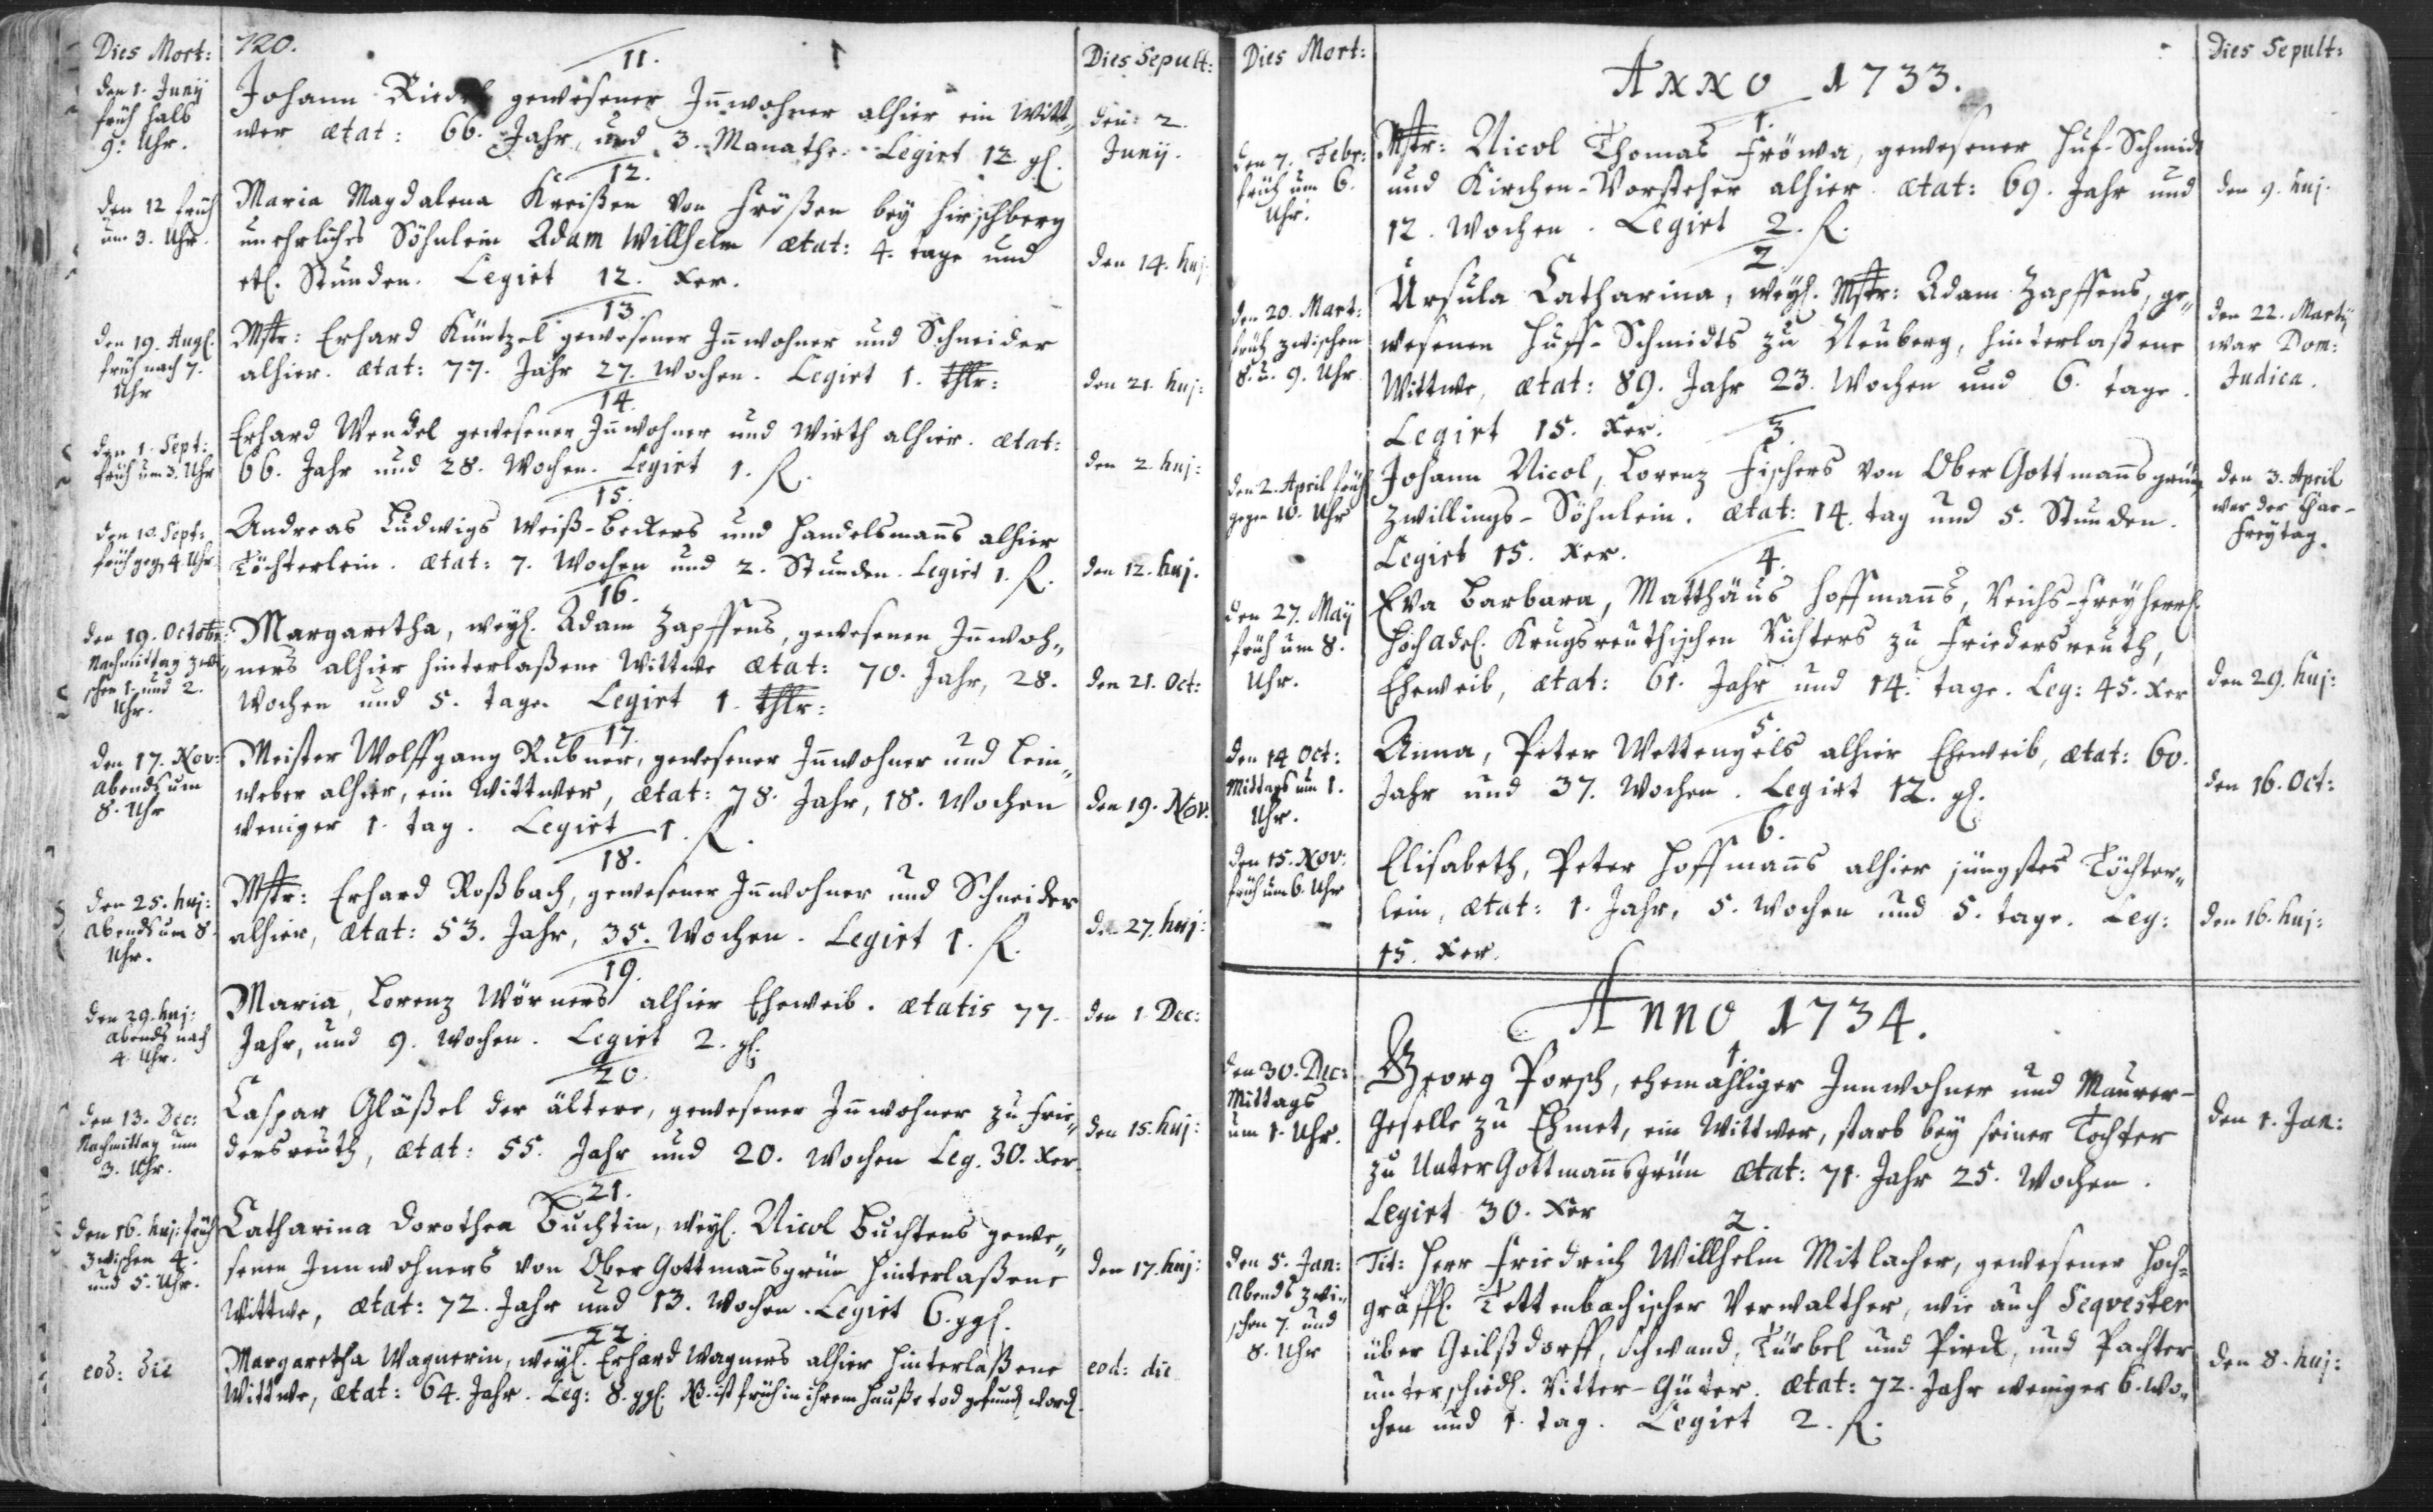 Dies Mort:
720.
Dies Sepult:
11.
den 1. Junij
früh halb
9. Uhr.
Johann Riedel gewesener Inwohner alhier ein Witt„
wer ætat: 66. Jahr, und 3. Monathe. Legirt 12 gl.
den: 2.
Junij.
12.
den 12 früh
um 3. Uhr.
Maria Magdalena Kreißen von Frößen bey Hirschberg
unehrliches Söhnlein Adam Willhelm ætat: 4. tage und
etl. Stunden. Legirt 12. Xer.
den 14. huj:
13.
den 19. Augl.
früh nach 7.
Uhr
Mstr: Erhard Küntzel gewesener Inwohner und Schneider
alhier. ætat: 77. Jahr 27. Wochen. Legirt 1. thlr:
den 21. huj:
14.
den 1. Sept:
früh um 3. Uhr
Erhard Wendel gewesener Inwohner und Wirth alhier. ætat:
66. Jahr und 28. Wochen. Legirt 1. fl.
den 2. huj:
15.
den 10. Sept:
früh geg. 4 Uhr
Andreas Ludwigs Weiß-beckers und Handelsmans alhier
Töchterlein. ætat: 7. Wochen und 2. Stunden. Legirt 1. fl.
den 12. huj.
16.
den 19. Octobr:
Nachmittag zwi„
schen 1. und 2.
Uhr.
Margaretha, weyl. Adam Zapffens, gewesenen Inwoh„
ners alhier hinterlaßene Wittwe ætat: 70. Jahr, 28.
Wochen und 5. tage. Legirt 1. thlr:
den 21. Oct:
17.
den 17. Nov:
abends um
8. Uhr
Meister Wolffgang Rubner, gewesener Inwohner und Lein„
weber alhier, ein Wittwer, ætat: 78. Jahr, 18. Wochen
weniger 1. tag. Legirt 1. fl.
den 19. Nov.
18.
den 25. huj:
abends um 8.
Uhr.
Mstr: Erhard Roßbach, gewesener Inwohner und Schneider
alhier, ætat: 53. Jahr, 35. Wochen. Legirt 1. fl.
den 27. huj:
19.
den 29. huj:
abends nach
4. Uhr.
Maria, Lorenz Wörners alhier Eheweib. ætatis 77.
Jahr, und 9. Wochen. Legirt 2. gl.
den 1. Dec:
20.
den 13. Dec:
Nachmittag um
3. Uhr.
Caspar Gläßel der ältere, gewesener Inwohner zu Frie„
dersreuth, ætat: 55. Jahr und 20. Wochen Leg. 30. Xer.
den 15. huj:
21.
den 16. huj: früh
zwischen 4.
und 5. Uhr.
Catharina Dorothea Buchtin, weyl. Nicol Buchtens gewe„
senen Innwohners von Ober Gottmansgrün hinterlaßene
Wittwe, ætat: 72. Jahr und 13. Wochen. Legirt 6. ggl.
den 17. huj:
22.
eod: die
Margaretha Wagnerin, weyl. Erhard Wagners alhier hinterlaßene
Wittwe, ætat: 64. Jahr. Leg: 8. ggl. NB. ist früh in ihrem Hauße tod gefund. word.
eod: die
Dies Mort:
Dies Sepult:
Anno 1733.
1.
den 7. Febr:
früh um 6.
Uhr.
Mstr: Nicol Thomas Fröwa, gewesener Huf-Schmidt
und Kirchen-Vorsteher alhier. ætat: 69. Jahr und
12. Wochen. Legirt 2. fl.
den 9. huj.
2.
den 20. Mart:
früh zwischen
8. u. 9. Uhr
Ursula Catharina, weyl. Mstr: Adam Zapffens, ge„
wesenen Huff-Schmidts zu Neuberg, hinterlaßene
Wittwe, ætat: 89. Jahr 23. Wochen und 6. tage.
Legirt 15. Xer.
den 22. Martij
war Dom:
Judica.
3.
den 2. April früh
gegen 10. Uhr
Johann Nicol, Lorenz Fischers von Ober Gottmansgrün
Zwillings-Söhnlein. ætat: 14. tag und 5. Stunden.
Legirt 15. Xer.
den 3. April
war der Char-
Freytag.
4.
den 27. Maij
früh um 8.
Uhr.
Eva Barbara, Matthäus Hoffmans, Reichs-Freyherrl.
Hochadel. Krugsreuthischen Richters zu Friedersreuth,
Eheweib, ætat: 61. Jahr und 14. tage. Leg: 45. Xer
den 29. huj:
5.
den 14 Oct:
Mittags um 1.
Uhr.
Anna, Peter Wettengels alhier Eheweib, ætat: 60.
Jahr und 37. Wochen. Legirt 12. gl.
den 16. Oct:
6.
den 15. Nov:
früh um 6. Uhr
Elisabeth, Peter Hoffmans alhier jüngstes Töchter„
lein, ætat: 1. Jahr, 5. Wochen und 5. tage. Leg:
15. Xer.
den 16. huj:
Anno 1734.
1.
den 30. Dec:
Mittags
um 1. Uhr.
Georg Porsch, ehemahliger Innwohner und Maurer-
Geselle zu Ehmet, ein Wittwer, starb bey seiner Tochter
zu Unter Gottmansgrün ætat: 71. Jahr 25. Wochen.
Legirt 30. Xer
den 1. Jan:
2.
den 5. Jan:
abends zwi„
schen 7. und
8. Uhr
Tit: Herr Friedrich Willhelm Mitlacher, gewesener Hoch-
gräffl. Tettenbachischer Verwalther, wie auch Seqvester
über Geilßdorff, Schwand, Türbel und Pirck, und Pachter
unterschiedl. Ritter-Güter. ætat: 72. Jahr weniger 6. Wo„
chen und 1. tag. Legirt 2. fl.
den 8. huj: